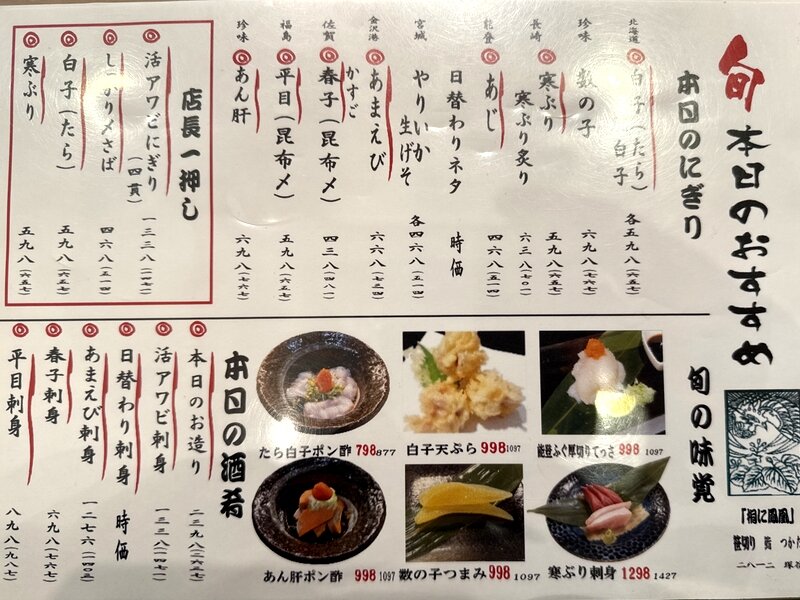 旬 本日のおすすめ
本日のにぎり
北海道 白子(たら) 白子 各五九八(六五七)
珍味 数の子 六九八(七六七)
長崎 寒ぶり 五九八(六五七)
寒ぶり炙り 六三八(七〇一)
能登 あじ 四六八(五一四)
日替わりネタ 時価
宮城 やりいか 生げそ 各四六八(五一四)
金沢港 あまえび 六六八(七三四)
佐賀 春子(昆布〆) かすご 四三八(四八一)
福島 平目(昆布〆) 五九八(六五七)
珍味 あん肝 六九八(七六七)
店長一押し
活アワビにぎり(四貫) 一三三八(一四七一)
しっかり〆さば 四六八(五一四)
白子(たら) 五九八(六五七)
寒ぶり 五九八(六五七)
旬の味覚
能登ふぐ厚切りてっさ 998 1097
白子天ぷら 998 1097
たら白子ポン酢 798 877
寒ぶり刺身 1298 1427
数の子つまみ 998 1097
あん肝ポン酢 998 1097
本日の酒肴
本日のお造り
活アワビ刺身
日替わり刺身 時価
あまえび刺身 一二七六(一四〇三)
春子刺身 六九八(七六七)
平目刺身 八九八(九八七)
「桐に鳳凰」
笹切り 鮨 つかだ